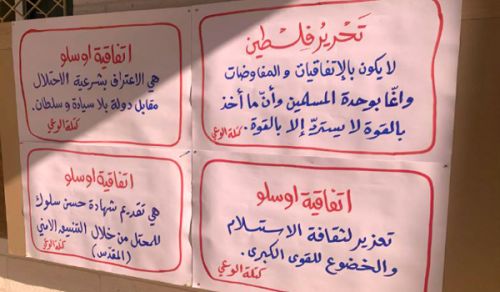 تحرير فلسطين
لا يكون بالإتفاقيات والمفاوضات
وإنما بوحدة المسلمين وأن ما أخذ
بالقوة لا يستردّ إلا بالقوة.
كتلة الوعي
اتفاقية اوسلو
هي الاعتراف بشرعية الاحتلال
مقابل دولة بلا سيادة و سلطان.
كتلة الوعي
اتفاقية اوسلو
تعزيز لثقافة الاستسلام
والخضوع للقوى الكبرى.
كتلة الوعي
اتفاقية اوسلو
هي تقديم شهادة حسن سلوك
للمحتل من خلال التنسيق الأمني
(المقدس)
كتلة الوعي